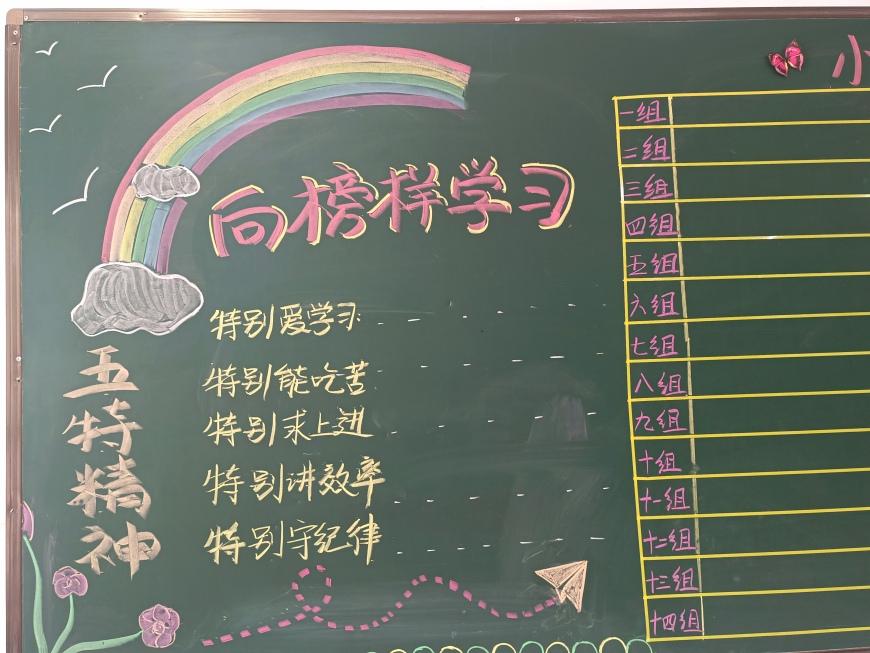 向榜样学习
特别爱学习:
特别能吃苦
特别求上进
特别讲效率
特别守纪律
五特精神
小
一组
二组
三组
四组
五组
六组
七组
八组
九组
十组
十一组
十二组
十三组
十四组